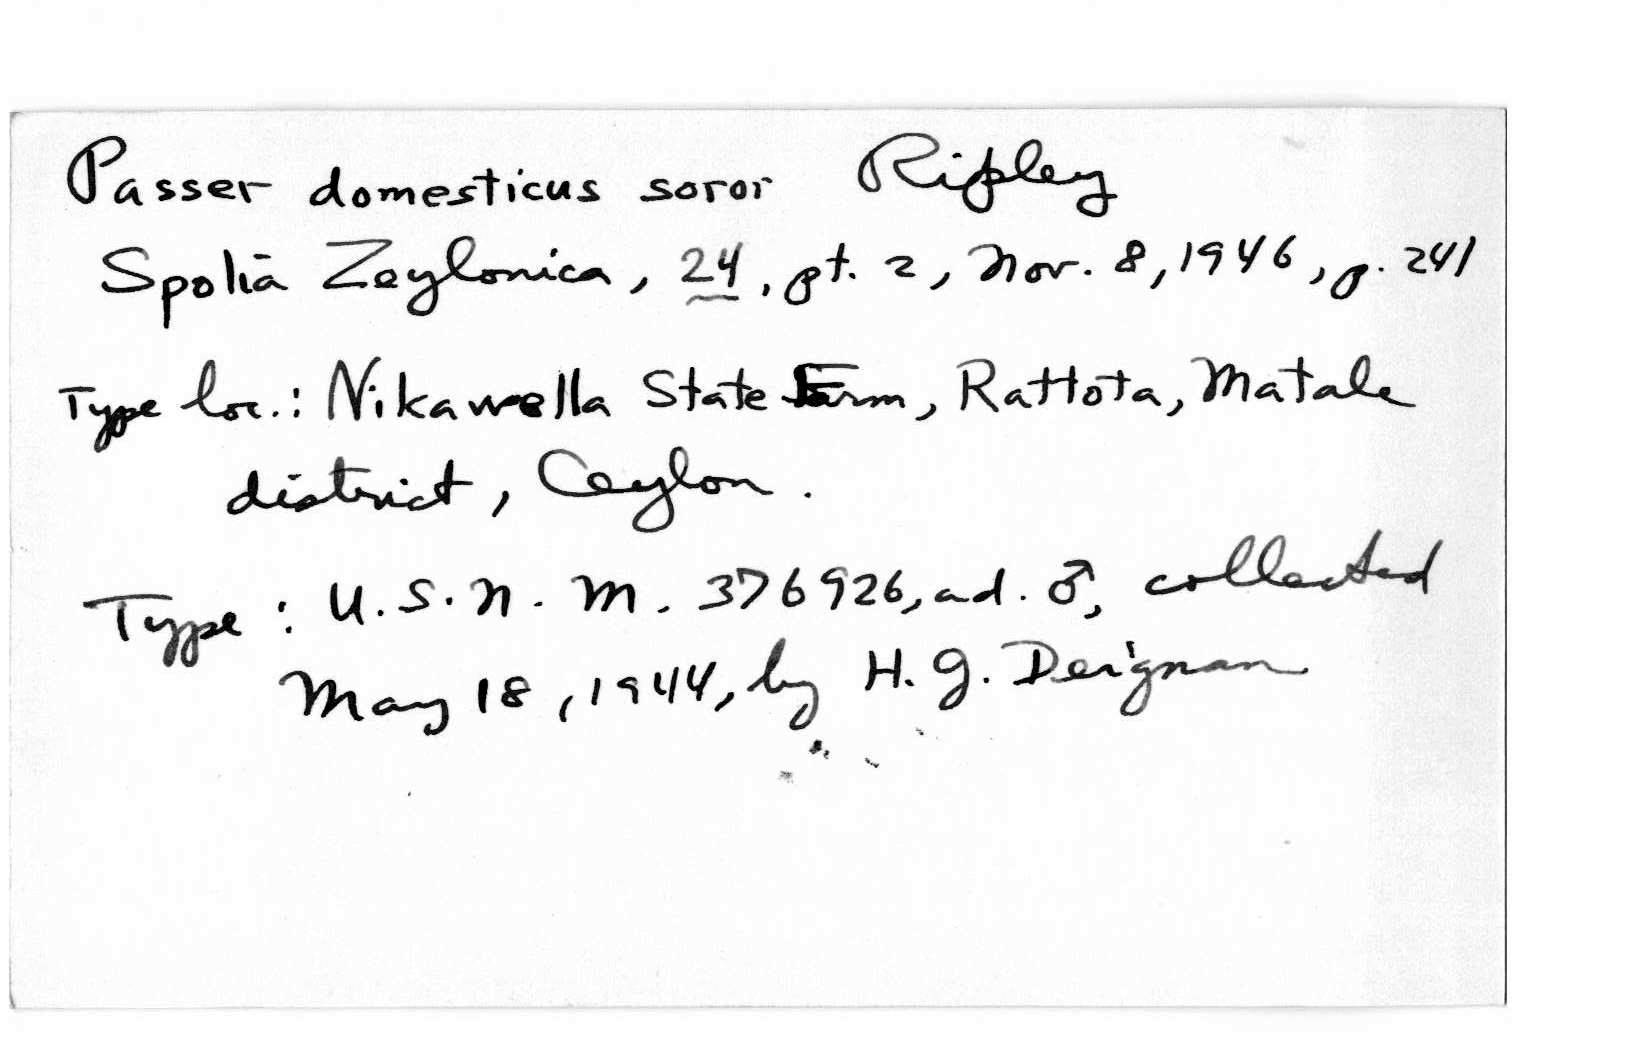 Passer domesticus soror Ripley
Spolia Zeylonica, 24, pt. 2, Nov. 8, 1946, p. 241
Type loc.: Nikawella State Farm, Rattota, Matale
district, Ceylon.
Type: U.S.N.M. 376926, ad. ♂, collected
May 18, 1944, by H. G. Deignan